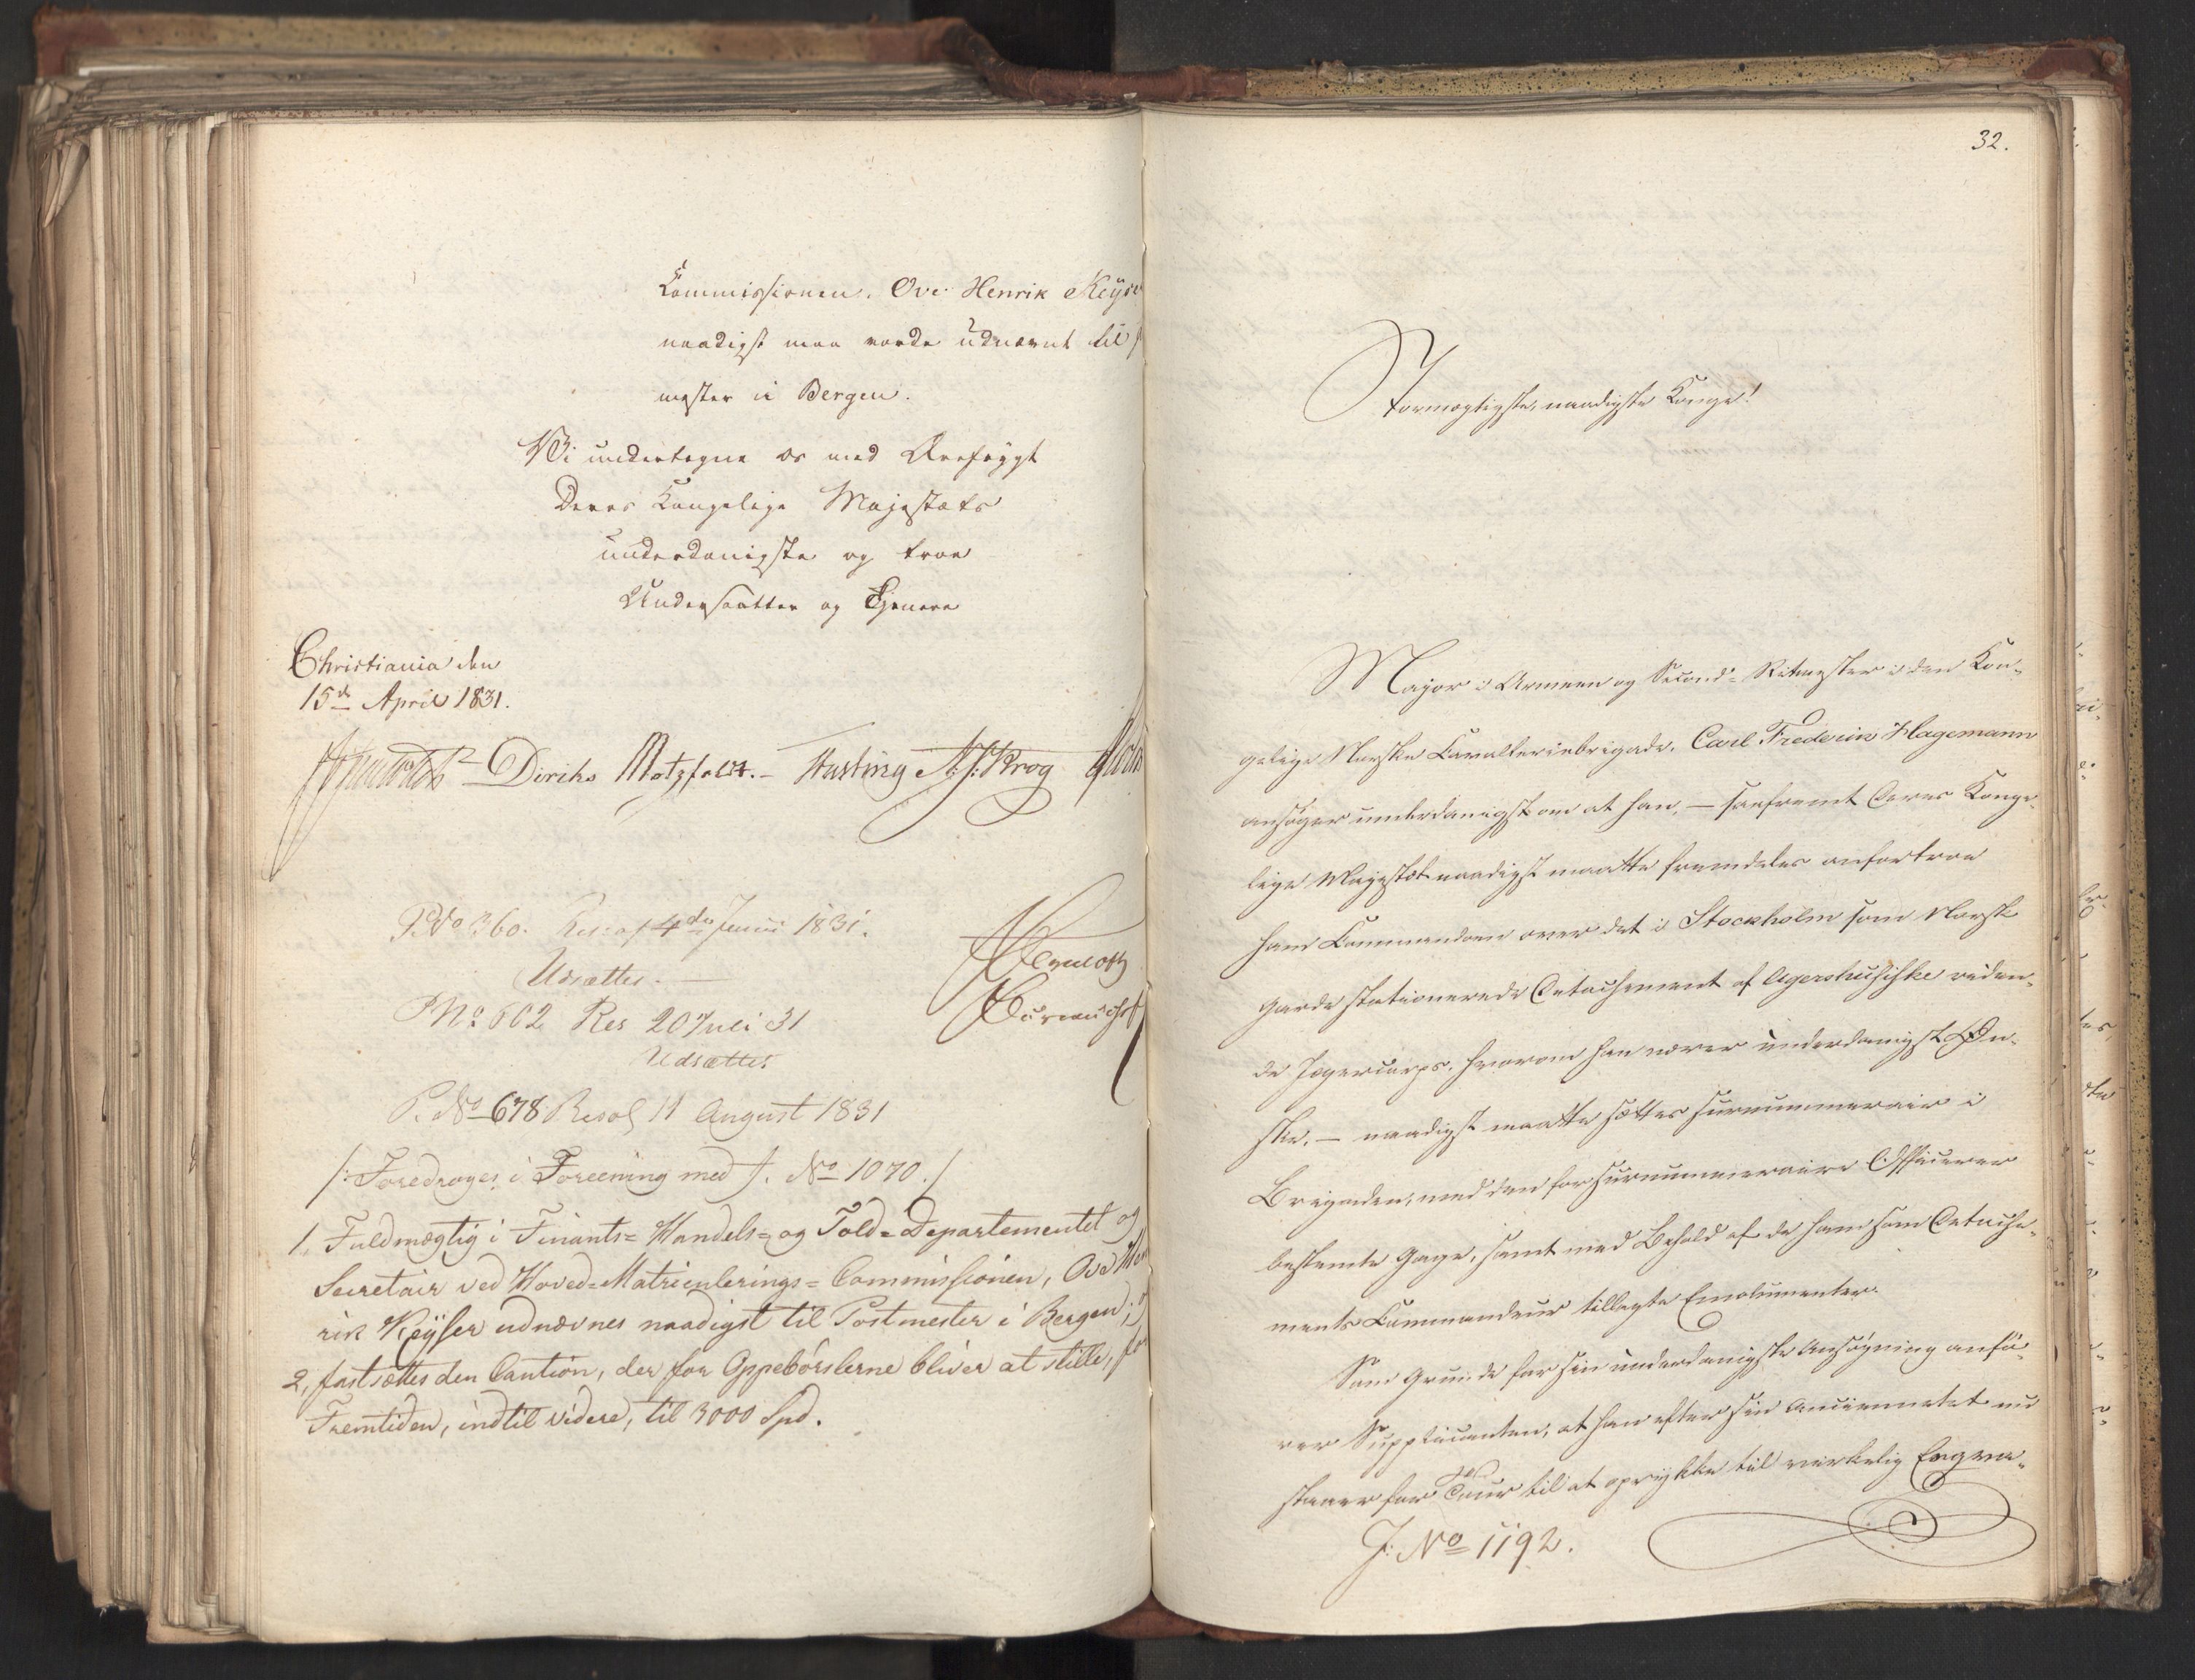 Commissionen, Ove Henrik Keyse
naadigst maa vorde udnævnt til
mester i Bergen.
Vi undertegne os med Ærefrygt
Deres Kongelige Majestæts
underdanigste og troe
Undersaatter og Tjenere
Christiania den
15de April 1831.
Diriks Motzfeldt.- Fasting Krog
P. No 360. Res: af 4de Junii 1831.
Udsættes.
P No 602 Res 20 Juli 31
Udsættes
P. No 678 Resol 11 August 1831
/: Foredrages i Foreening med J. No 1070. /
1, Fuldmægtig i Finants= Handels= og Told=Departementet og
Secretair ved Hoved=Matriculerings=Commissionen, Ove Hen
rik Keyser udnævnes naadigst til Postmester i Bergen; og
2, fastsættes den Caution, der for Oppebörslerne bliver at stille, for
Fremtiden, indtil videre, til 3000 Spd.
32.
Stormægtigste, naadigste Konge!
Major i Armeen og Second=Ritmester i den Kon-
gelige Norske Cavalleriebrigade, Carl Frederik Hagemann
ansøger underdanigst om at han, — saafremt Deres Konge-
lige Majestæt naadigst maatte fremdeles anfortroe
ham Commandoen over det i Stockholm som Norsk
Garde stationerede Detachement af Agershusiske riden-
de Jægercorps, hvorom han nærer underdanigst Øn-
ske, — naadigst maatte sættes surnummerair i
Brigaden, med den for surnummeraire Officerer
bestemte Gage, samt med Behold af de ham som Detache-
ments Commandeur tillagte Emolumenter.
Som Grunde for sin underdanigste Ansøgning anfø-
rer Supplicanten, at han efter sin Anciennetet nu
staaer for Tour til at oprykke til virkelig Esqva-
J: No 1192.